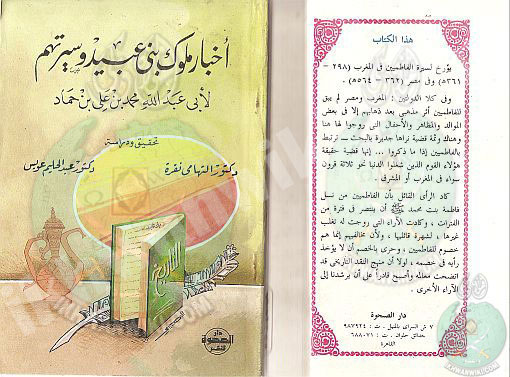 أخبار ملوك بنى عبيد وسيرتهم
لأبى عبد الله محمد بن على بن حماد
تحقيق ودراسة
دكتور التهامى نقرة
دكتور عبد الحليم عويس
التاريخ
دار
الصحوة
للنشر
هذا الكتاب
يؤرخ لسيرة الفاطميين فى المغرب (٢٩٨ –
٣٦١هـ) وفى مصر (٣٦٢ – ٥٦٤هـ).
وفى كلا الدولتين : المغرب ومصر لم يبق
للفاطميين أثر مذهبى بعد ذهابهم إلا فى بعض
الموالد والمظاهر والأحفال التى روجوا لها هنا
وهناك وثمة قضية نراها جديرة بالبحث – ترتبط
بالفاطميين إذا ما ذكروا ... إنها قضية حقيقة
هؤلاء القوم الذين شغلوا الدنيا نحو ثلاثة قرون
سواء فى المغرب أو المشرق .
كاد الرأى القائل بأن الفاطميين من نسل
فاطمة بنت محمد ﷺ أن ينتصر فى فترة من
الفترات ، وكادت الآراء التى روجت له تغلب
غيرها ، لشهرة قائليها ، ولأن مخالفيهم إنما هم
خصوم للفاطميين ، وحرى بالخصم أن لا يؤخذ
رأيه فى خصمه ، لولا أن منهج النقد التاريخى قد
اتضحت معالمه وأصبح قادراً على أن يرشدنا إلى
الآراء الأخرى .
دار الصحوة
٧ ش السراى بالمنيل – ت : ٩٨٧٩٢٤
حدائق حلوان – ت : ٦٨٨٠٧١
القاهرة